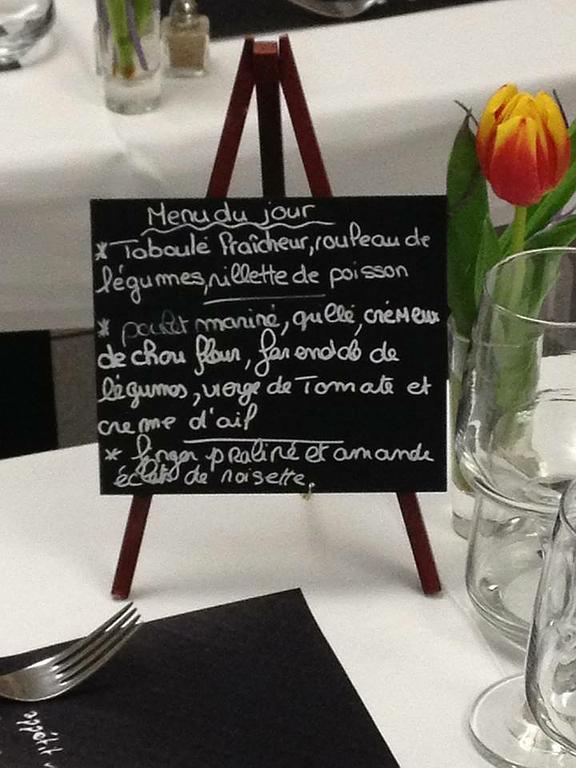 Menu du jour
* Taboulé Fraîcheur, rouleau de
légumes, rillette de poisson
* poulet mariné, grillé, crémeux
de chou fleur, farandole de
légumes, vierge de Tomate et
creme d'ail
* finger praliné et amande
éclats de noisette.
appétit